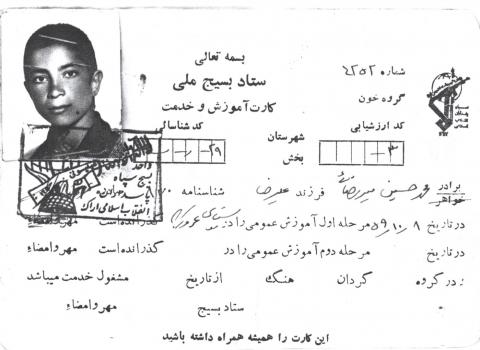 بسمه تعالی
ستاد بسیج ملی
کارت آموزش و خدمت
شماره ۷۲۵۲
گروه خون
کد ارزشیابی
شهرستان
بخش
کد شناسائی
۳
۲۹
واحد
بسیج سپاه
انقلاب اسلامی اراک
برادر
خواهر
محمد حسین فرزند علیرضا شناسنامه
در تاریخ ۵۹/۱۰/۸ مرحله اول آموزش عمومی را در گذرانده است مهر و امضاء
در تاریخ مرحله دوم آموزش عمومی را در گذرانده است مهر و امضاء
در گروه گردان هنگ از تاریخ مشغول خدمت میباشد
ستاد بسیج مهر و امضاء
این کارت را همیشه همراه داشته باشید